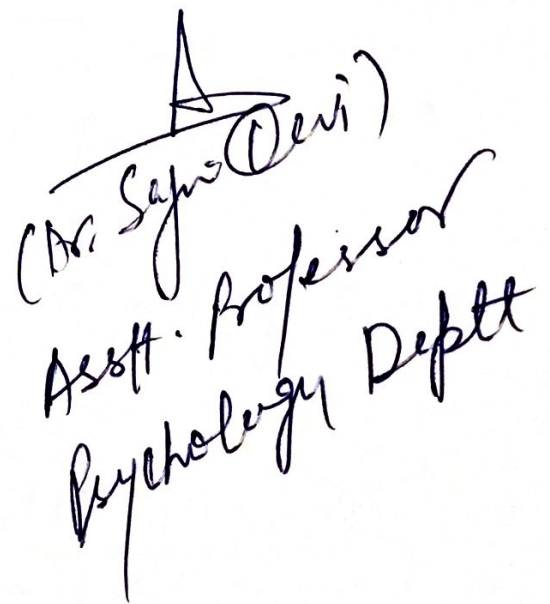 (Dr. Devi)
Asstt. Professor
Psychology Deptt